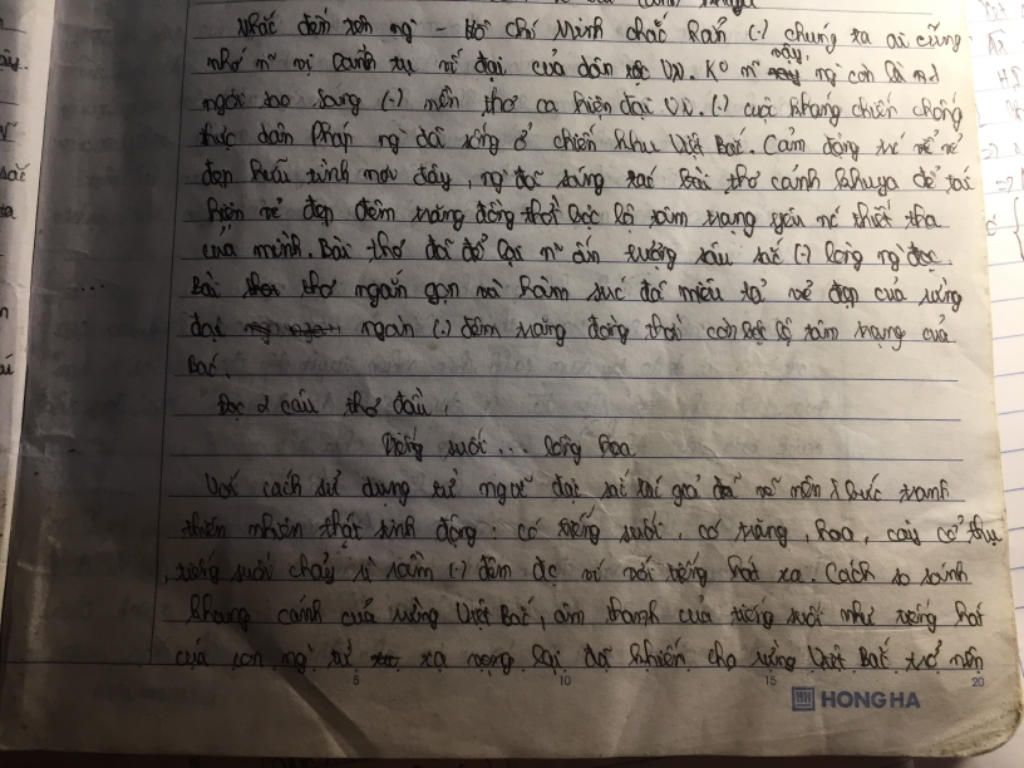 Nhắc đến tên ng - Hồ Chí Minh chắc hẳn (.) chúng ta ai cũng
nhớ vị lãnh tụ vĩ đại của dân tộc VN. Ko này ng còn là
ngôi sao sáng (.) nền thơ ca hiện đại VN. (.) cuộc kháng chiến chống
thực dân Pháp ng đã sống ở chiến khu Việt Bắc. Cảm động vẻ
đẹp hữu tình nơi đây, ng đã sáng tác bài thơ cảnh khuya để tái
hiện vẻ đẹp đêm trăng đồng thời bộc lộ tâm trạng yêu nc thiết tha
của mình. Bài thơ đã để lại ấn tượng sâu sắc (.) lòng ng đọc.
Bài thơ ngắn gọn và hàm súc đã miêu tả vẻ đẹp của rừng
đại ngàn (.) đêm trăng đồng thời còn bộc lộ tâm trạng của
Bác.
Đọc 2 câu thơ đầu,
Tiếng suối ... lồng hoa
Với cách sử dụng từ ngữ đặc sắc tác giả đã vẽ nên bức tranh
thiên nhiên thật sinh động: có tiếng suối, có trăng, hoa, cây cổ thụ
, tiếng suối chảy rì rầm (.) đêm đc ví với tiếng hát xa. Cách so sánh
khung cảnh của rừng Việt Bắc, âm thanh của tiếng suối như tiếng hát
của con ng từ xa vọng lại đã khiến cho rừng Việt Bắc trở nên
5 10 15 20
HH HONG HA